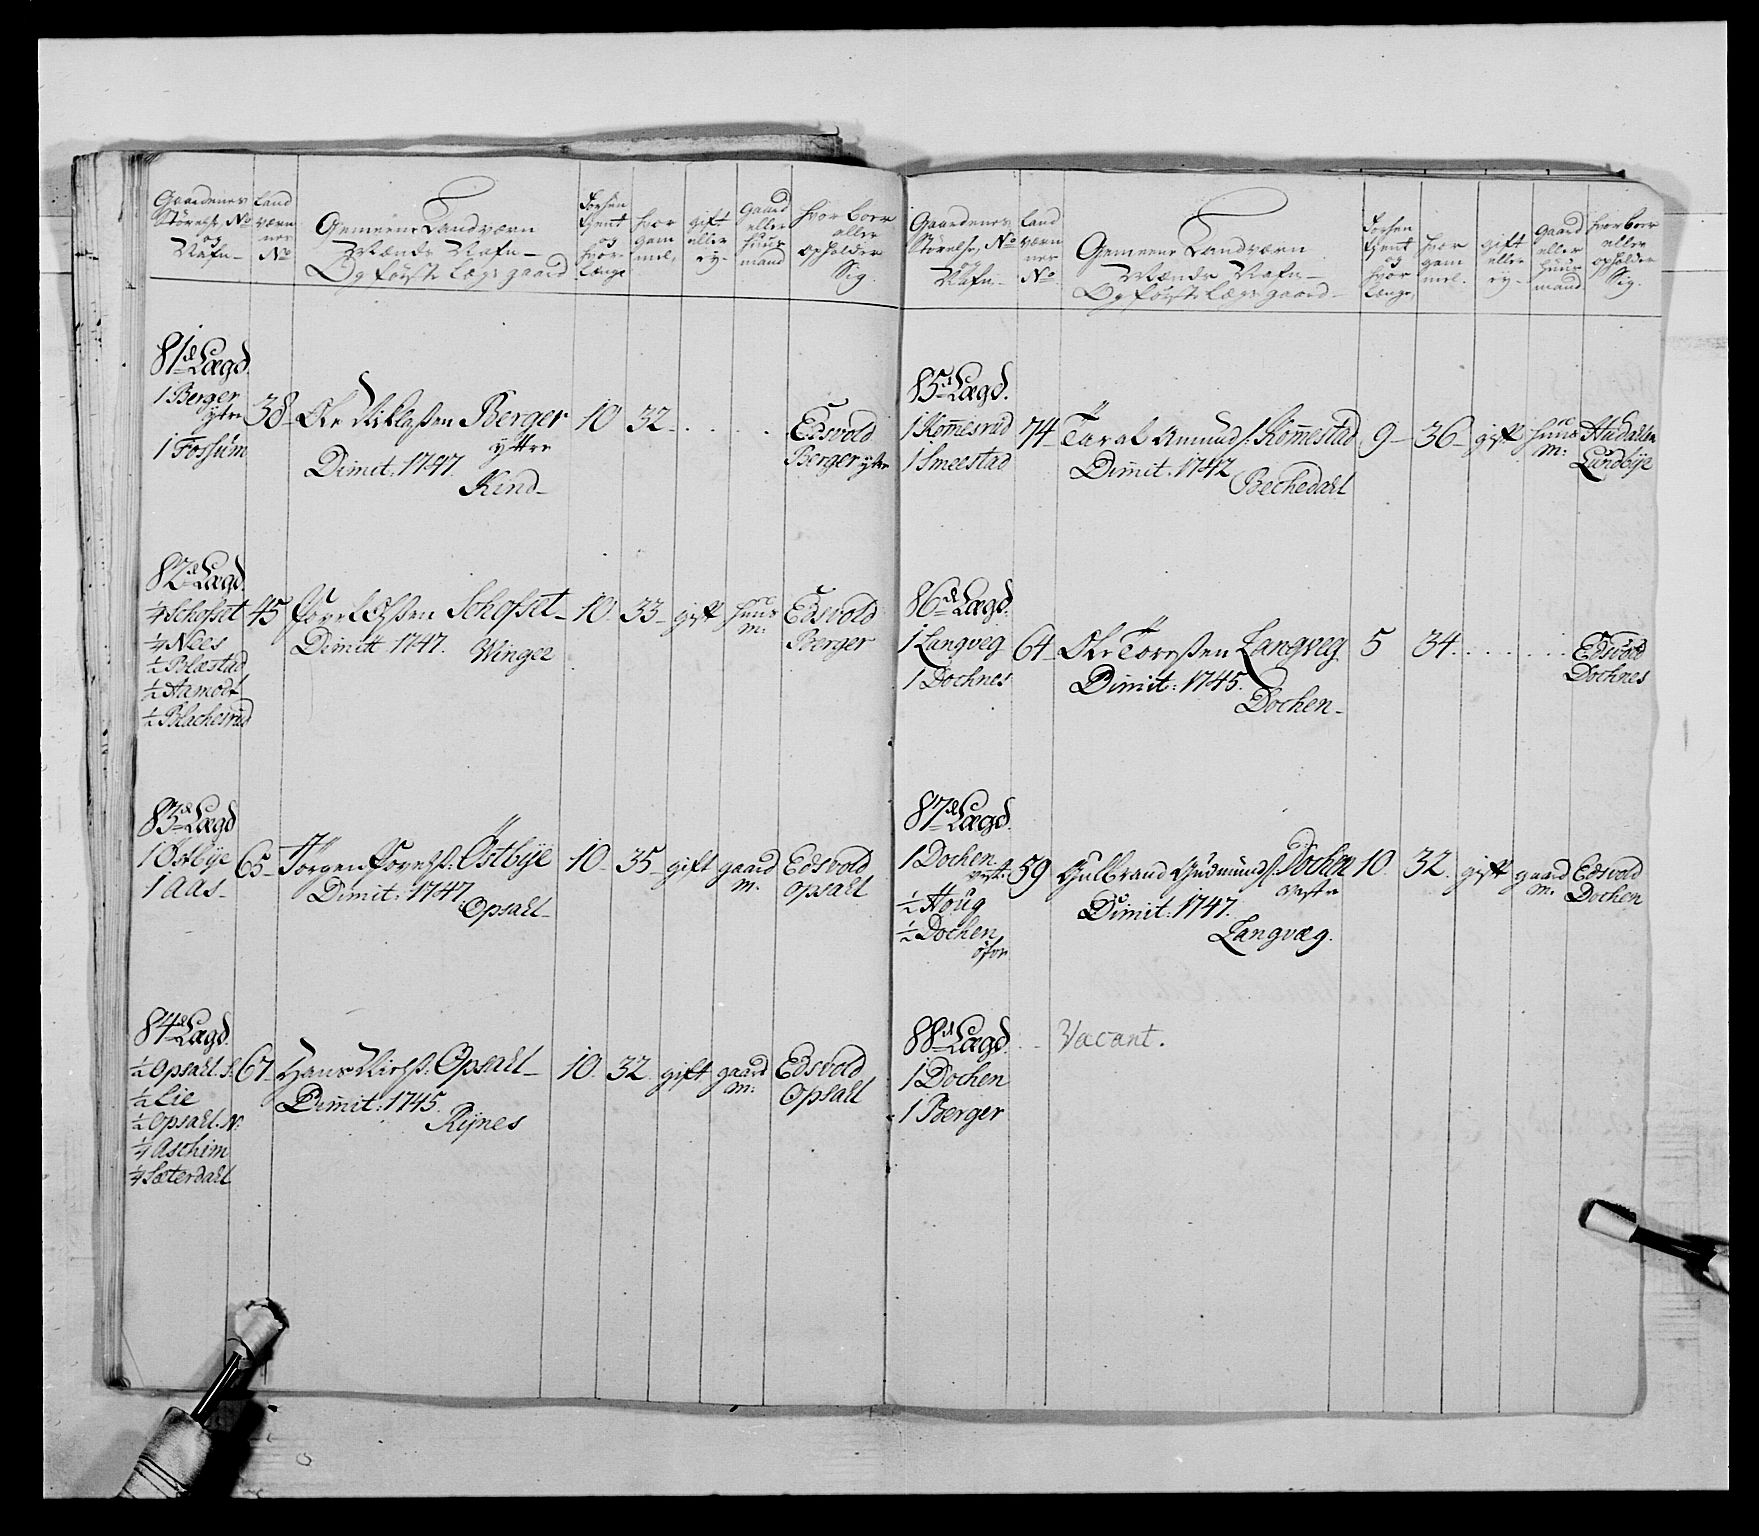 Gaardenes
Størelse, No
og
Nafn-
Land
værn
nes
No
Gemeene Landværn
Mænds Nafn-
Og første Lægs gaard
Forhen
tient
og
hvor
Længe
hvor
gam
mel,
gift
eller
ey-
Gaard
eller
huus
mand
hvor boer
eller
opholder
Sig.
81de Lægd.
1 Berger
ytre
1 Fossum
38-
Ole Niklassen Berger
yttre
Dimit: 1747.
Kind-
10
32-
Edsvold
Berger ytre
82de Lægd.
1/4 Schofset
1/4 Nees
1/2 Blæstad
1/2 Aamodt
1/2 Blachesrud
45
Povel Olssen Schofset-
Dimitt 1747.
Winger
10
33-
gift
huus
m:
Edsvold
Berger
83de Lægd
1 Østbÿe
1 Aas-
65-
Jörgen Povelss: Östbÿe
Dimit: 1747.
Opsahl-
10.
35-
gift
gaard
m.
Edsvold
Opsahl
84de Lægd.
1/2 Opsahl. S.
1/2 Lie
1/2 Opsahl. N:
1/4 Aschim
1/4 Sæterdahl
67-
Hans Nielss: Opsahl-
Dimit: 1745.
Rÿnes
10.
32.
gift
gaard
m:
Edsvold
Opsahl
Gaardenes
Størelse, No
og
Nafn-
Land
værn
nes
No
Gemeene Landværn
Mænds Nafn-
Og første Lægs gaard-
Forhen
tient
og
hvor
Længe,
hvor
gam
mel.
gift
eller
ey-
Gaard
eller
huus
mand
hvor boer
eller
opholder
Sig.
85de Lægd.
1 Kommesrud
1 Smeestad
74
Taral Amunds: Kommestad
Dimit: 1742
Bechedahl
9-
36-
gift
huus
m:
Audahlen
Lundbÿe
86de Lægd.
1 Langveg
1 Dochnes
64-
Ole Toressen Langveg
Dimit: 1745.
Dochen-
5
34.
Edsvold
Dochnes
87de Lægd.
1 Dochen
vest:
1/2 Houg
1/2 Dochen
öfor
59
Gulbrand Gudmunds: Dochen
vestr
Dimit: 1747.
Langvæg.
10.
32.
gift
gaard
m:
Edsvold
Dochen
88de Lægd.
1 Dochen
1 Berger
Vacant.